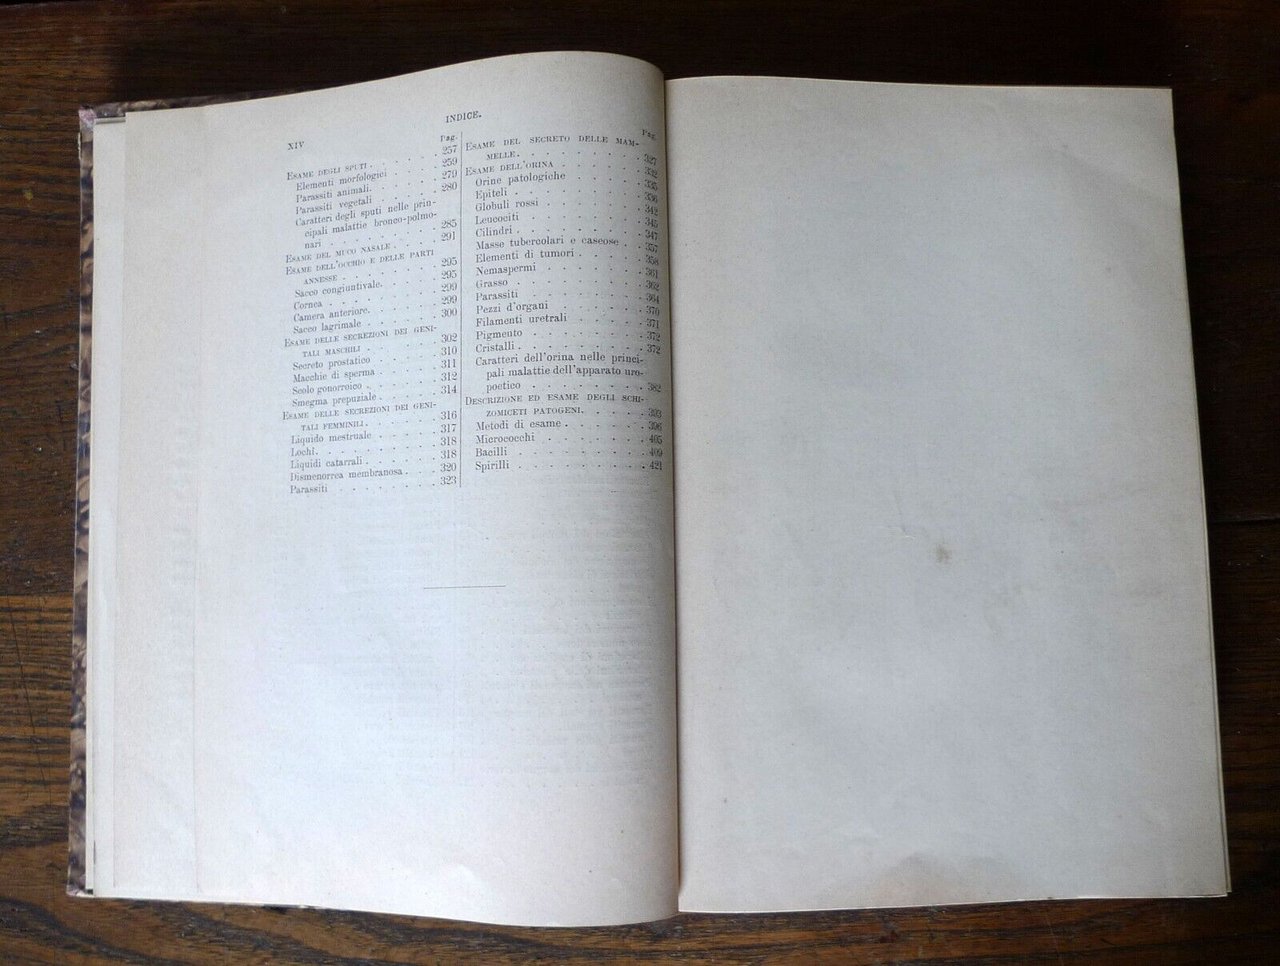 XIV
INDICE.
Pag.
ESAME DEGLI SPUTI . . . . . . 257
Elementi morfologici . . . . 259
Parassiti animali. . . . . . 279
Parassiti vegetali . . . . . 280
Caratteri degli sputi nelle prin-
cipali malattie bronco-polmo-
nari . . . . . . . . 285
ESAME DEL MUCO NASALE . . . . 291
ESAME DELL'OCCHIO E DELLE PARTI
ANNESSE . . . . . . . . 295
Sacco congiuntivale. . . . . 295
Cornea . . . . . . . . 299
Camera anteriore. . . . . . 299
Sacco lagrimale . . . . . . 300
ESAME DELLE SECREZIONI DEI GENI-
TALI MASCHILI . . . . . . 302
Secreto prostatico . . . . . 310
Macchie di sperma . . . . . 311
Scolo gonorroico . . . . . . 312
Smegma prepuziale . . . . . 314
ESAME DELLE SECREZIONI DEI GENI-
TALI FEMMINILI . . . . . . 316
Liquido mestruale . . . . . 317
Lochi. . . . . . . . . 318
Liquidi catarrali . . . . . . 318
Dismenorrea membranosa . . . 320
Parassiti . . . . . . . . 323
Pag.
ESAME DEL SECRETO DELLE MAM-
MELLE. . . . . . . . . 327
ESAME DELL'ORINA . . . . . . 332
Orine patologiche . . . . . 335
Epiteli . . . . . . . . 336
Globuli rossi . . . . . . . 342
Leucociti . . . . . . . . 345
Cilindri . . . . . . . . 347
Masse tubercolari e caseose . . 357
Elementi di tumori . . . . . 358
Nemaspermi . . . . . . . 361
Grasso . . . . . . . . 362
Parassiti . . . . . . . . 364
Pezzi d'organi . . . . . . 370
Filamenti uretrali . . . . . 371
Pigmento . . . . . . . . 372
Cristalli . . . . . . . . 372
Caratteri dell'orina nelle princi-
pali malattie dell'apparato uro-
poetico . . . . . . . . 382
DESCRIZIONE ED ESAME DEGLI SCHI-
ZOMICETI PATOGENI. . . . . 393
Metodi di esame . . . . . . 396
Micrococchi . . . . . . . 405
Bacilli . . . . . . . . 409
Spirilli . . . . . . . . 421